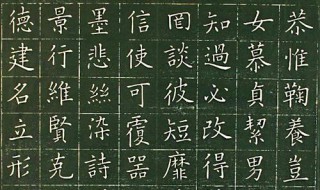 恭惟鞠養豈
女慕貞絜男
知過必改得
罔談彼短靡
信使可覆器
墨悲絲染詩
景行維賢克
德建名立形